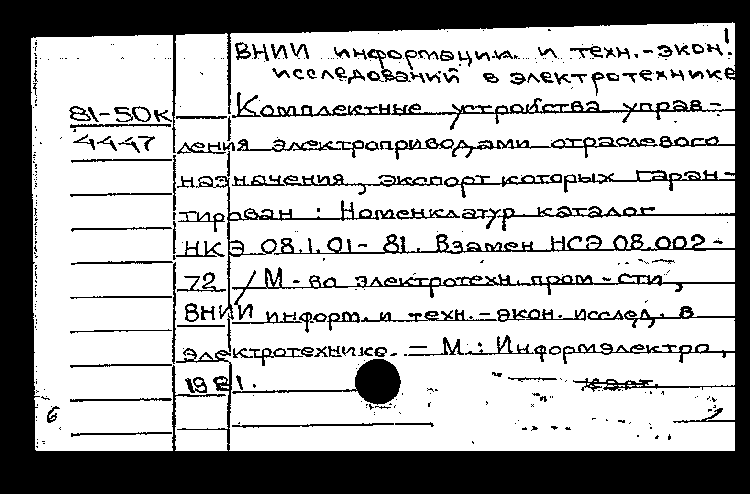 ВНИИ информации и техн.-экон.
исследований в электротехнике
81-50к Комплектные устройства управ-
4447 ления электроприводами отраслевого
назначения, экспорт которых гаран-
тирован : Номенклатур каталог
НКЭ 08.1.01-81. Взамен НСЭ 08.002-
72 / М-во электротехн. пром-сти,
ВНИИ информ. и техн.-экон. исслед. в
электротехнике. — М.: Информэлектро,
1981.
6